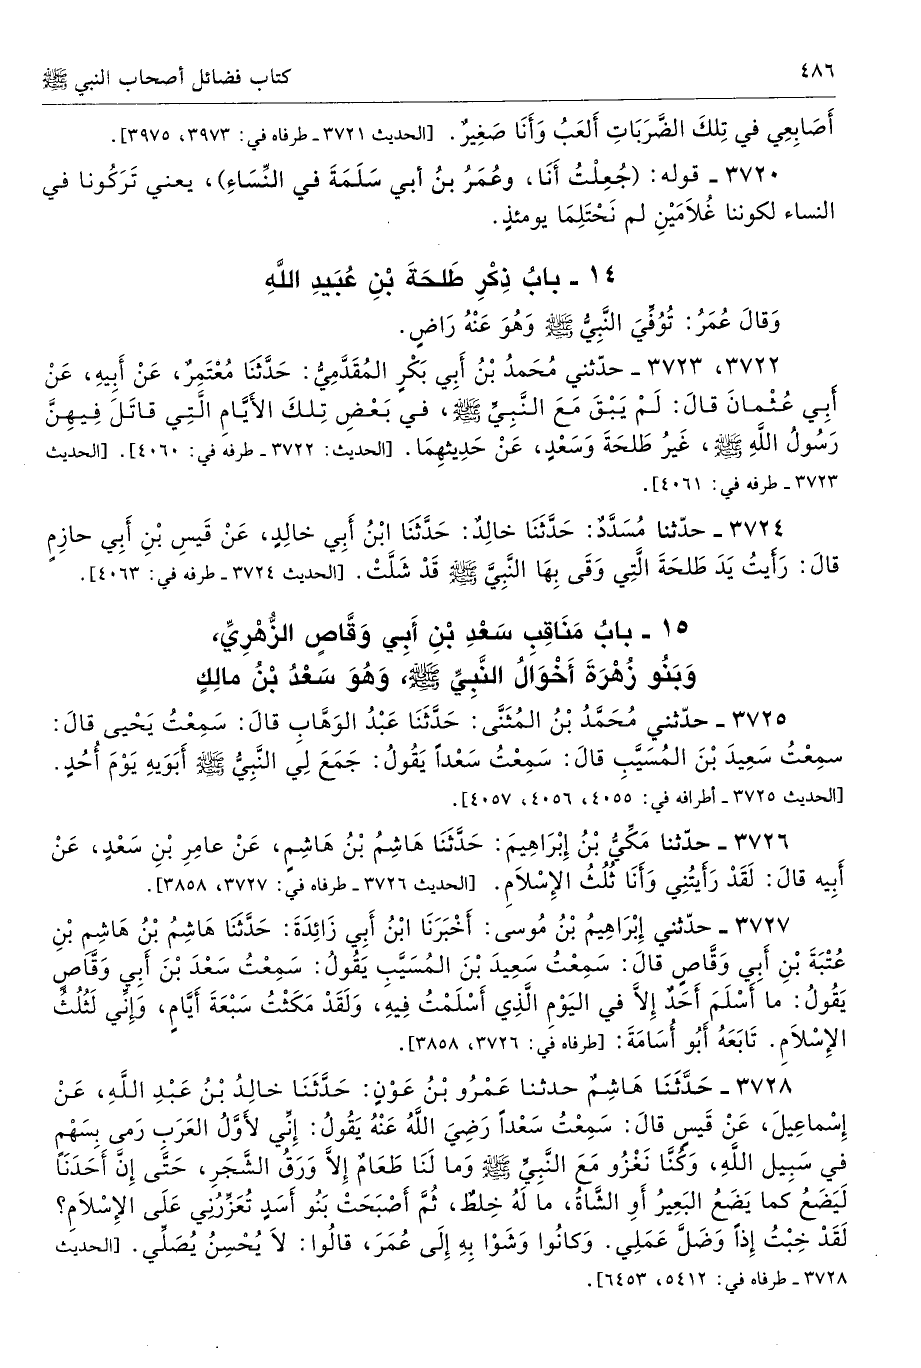 ٤٨٦ كتاب فضائل أصحاب النبي ﷺ
أَصَابِعِي في تِلكَ الضَّرَبَاتِ أَلعَبُ وَأَنَا صَغِيرٌ. [الحديث ٣٧٢١ ـ طرفاه في: ٣٩٧٣، ٣٩٧٥].
٣٧٢٠ ـ قوله: (جُعِلْتُ أَنَا، وعُمَرُ بنُ أبي سَلَمَةَ في النِّسَاءِ)، يعني تَرَكُونا في
النساء لكوننا غُلاَمَيْنِ لم نَحْتَلِمَا يومئذٍ.
١٤ ـ بابُ ذِكْرِ طَلحَةَ بْنِ عُبَيدِ اللَّهِ
وَقالَ عُمَرُ: تُوُفِّيَ النَّبِيُّ ﷺ وَهُوَ عَنْهُ رَاضٍ.
٣٧٢٢، ٣٧٢٣ ـ حدّثني مُحَمدُ بْنُ أَبِي بَكْرٍ المُقَدَّمِيُّ: حَدَّثَنَا مُعْتَمِرٌ، عَنْ أَبِيهِ، عَنْ
أَبِي عُثْمانَ قالَ: لَمْ يَبْقَ مَعَ النَّبِيِّ ﷺ، في بَعْضِ تِلكَ الأَيَّامِ الَّتِي قاتَلَ فِيهِنَّ
رَسُولُ اللَّهِ ﷺ، غَيرُ طَلحَةَ وَسَعْدٍ، عَنْ حَدِيثِهِمَا. [الحديث: ٣٧٢٢ ـ طرفه في: ٤٠٦٠]. [الحديث
٣٧٢٣ ـ طرفه في: ٤٠٦١].
٣٧٢٤ ـ حدّثنا مُسَدَّدٌ: حَدَّثَنَا خالِدٌ: حَدَّثَنَا ابْنُ أَبِي خالِدٍ، عَنْ قَيسِ بْنِ أَبِي حازِمٍ
قالَ: رَأَيتُ يَدَ طَلحَةَ الَّتِي وَقَى بِهَا النَّبِيَّ ﷺ قَدْ شَلَّتْ. [الحديث ٣٧٢٤ ـ طرفه في: ٤٠٦٣].
١٥ ـ بابُ مَنَاقِبِ سَعْدِ بْنِ أَبِي وَقَّاصٍ الزُّهْرِيِّ،
وَبَنُو زُهْرَةَ أَخْوَالُ النَّبِيِّ ﷺ، وَهُوَ سَعْدُ بْنُ مالِكٍ
٣٧٢٥ ـ حدّثني مُحَمَّدُ بْنُ المُثَنَّى: حَدَّثَنَا عَبْدُ الوَهَّابِ قالَ: سَمِعْتُ يَحْيى قالَ:
سمِعْتُ سَعِيدَ بْنَ المُسَيَّبِ قالَ: سَمِعْتُ سَعْداً يَقُولُ: جَمَعَ لِي النَّبِيُّ ﷺ أَبَوَيهِ يَوْمَ أُحُدٍ.
[الحديث ٣٧٢٥ ـ أطرافه في: ٤٠٥٥، ٤٠٥٦، ٤٠٥٧].
٣٧٢٦ ـ حدّثنا مَكِّيُّ بْنُ إِبْرَاهِيمَ: حَدَّثَنَا هَاشِمُ بْنُ هَاشِمٍ، عَنْ عامِرِ بْنِ سَعْدٍ، عَنْ
أَبِيهِ قالَ: لَقَدْ رَأَيتُنِي وَأَنَا ثُلُثُ الإِسْلاَمِ. [الحديث ٣٧٢٦ ـ طرفاه في: ٣٧٢٧، ٣٨٥٨].
٣٧٢٧ ـ حدّثني إِبْرَاهِيمُ بْنُ مُوسى: أَخْبَرَنَا ابْنُ أَبِي زَائِدَةَ: حَدَّثَنَا هَاشِمُ بْنُ هَاشِمِ بْنِ
عُتْبَةَ بْنِ أَبِي وَقَّاصٍ قالَ: سَمِعْتُ سَعِيدَ بْنَ المُسَيَّبِ يَقُولُ: سَمِعْتُ سَعْدَ بْنَ أَبِي وَقَّاصٍ
يَقُولُ: ما أَسْلَمَ أَحَدٌ إِلاَّ في اليَوْمِ الَّذِي أَسْلَمْتُ فِيهِ، وَلَقَدْ مَكَثْتُ سَبْعَةَ أَيَّامٍ، وَإِنِّي لَثُلُثُ
الإِسْلاَمِ. تَابَعَهُ أَبُو أُسَامَةَ: [طرفاه في: ٣٧٢٦، ٣٨٥٨].
٣٧٢٨ ـ حَدَّثَنَا هَاشِمٌ حدثنا عَمْرُو بْنُ عَوْنٍ: حَدَّثَنَا خالِدُ بْنُ عَبْدِ اللَّهِ، عَنْ
إِسْماعِيلَ، عَنْ قَيسٍ قالَ: سَمِعْتُ سَعْداً رَضِيَ اللَّهُ عَنْهُ يَقُولُ: إِنِّي لأَوَّلُ العَرَبِ رَمى بِسَهْمٍ
في سَبِيلِ اللَّهِ، وَكُنَّا نَغْزُو مَعَ النَّبِيِّ ﷺ وَما لَنَا طَعَامٌ إِلاَّ وَرَقُ الشَّجَرِ، حَتَّى إِنَّ أَحَدَنَا
لَيَضَعُ كما يَضَعُ البَعِيرُ أَوِ الشَّاةُ، ما لَهُ خِلطٌ، ثُمَّ أَصْبَحَتْ بَنُو أَسَدٍ تُعَزِّرُنِي عَلَى الإِسْلاَمِ؟
لَقَدْ خِبْتُ إِذاً وَضَلَّ عَمَلِي. وَكانُوا وَشَوْا بِهِ إِلَى عُمَرَ، قالُوا: لاَ يُحْسِنُ يُصَلِّي. [الحديث
٣٧٢٨ ـ طرفاه في: ٥٤١٢، ٦٤٥٣].